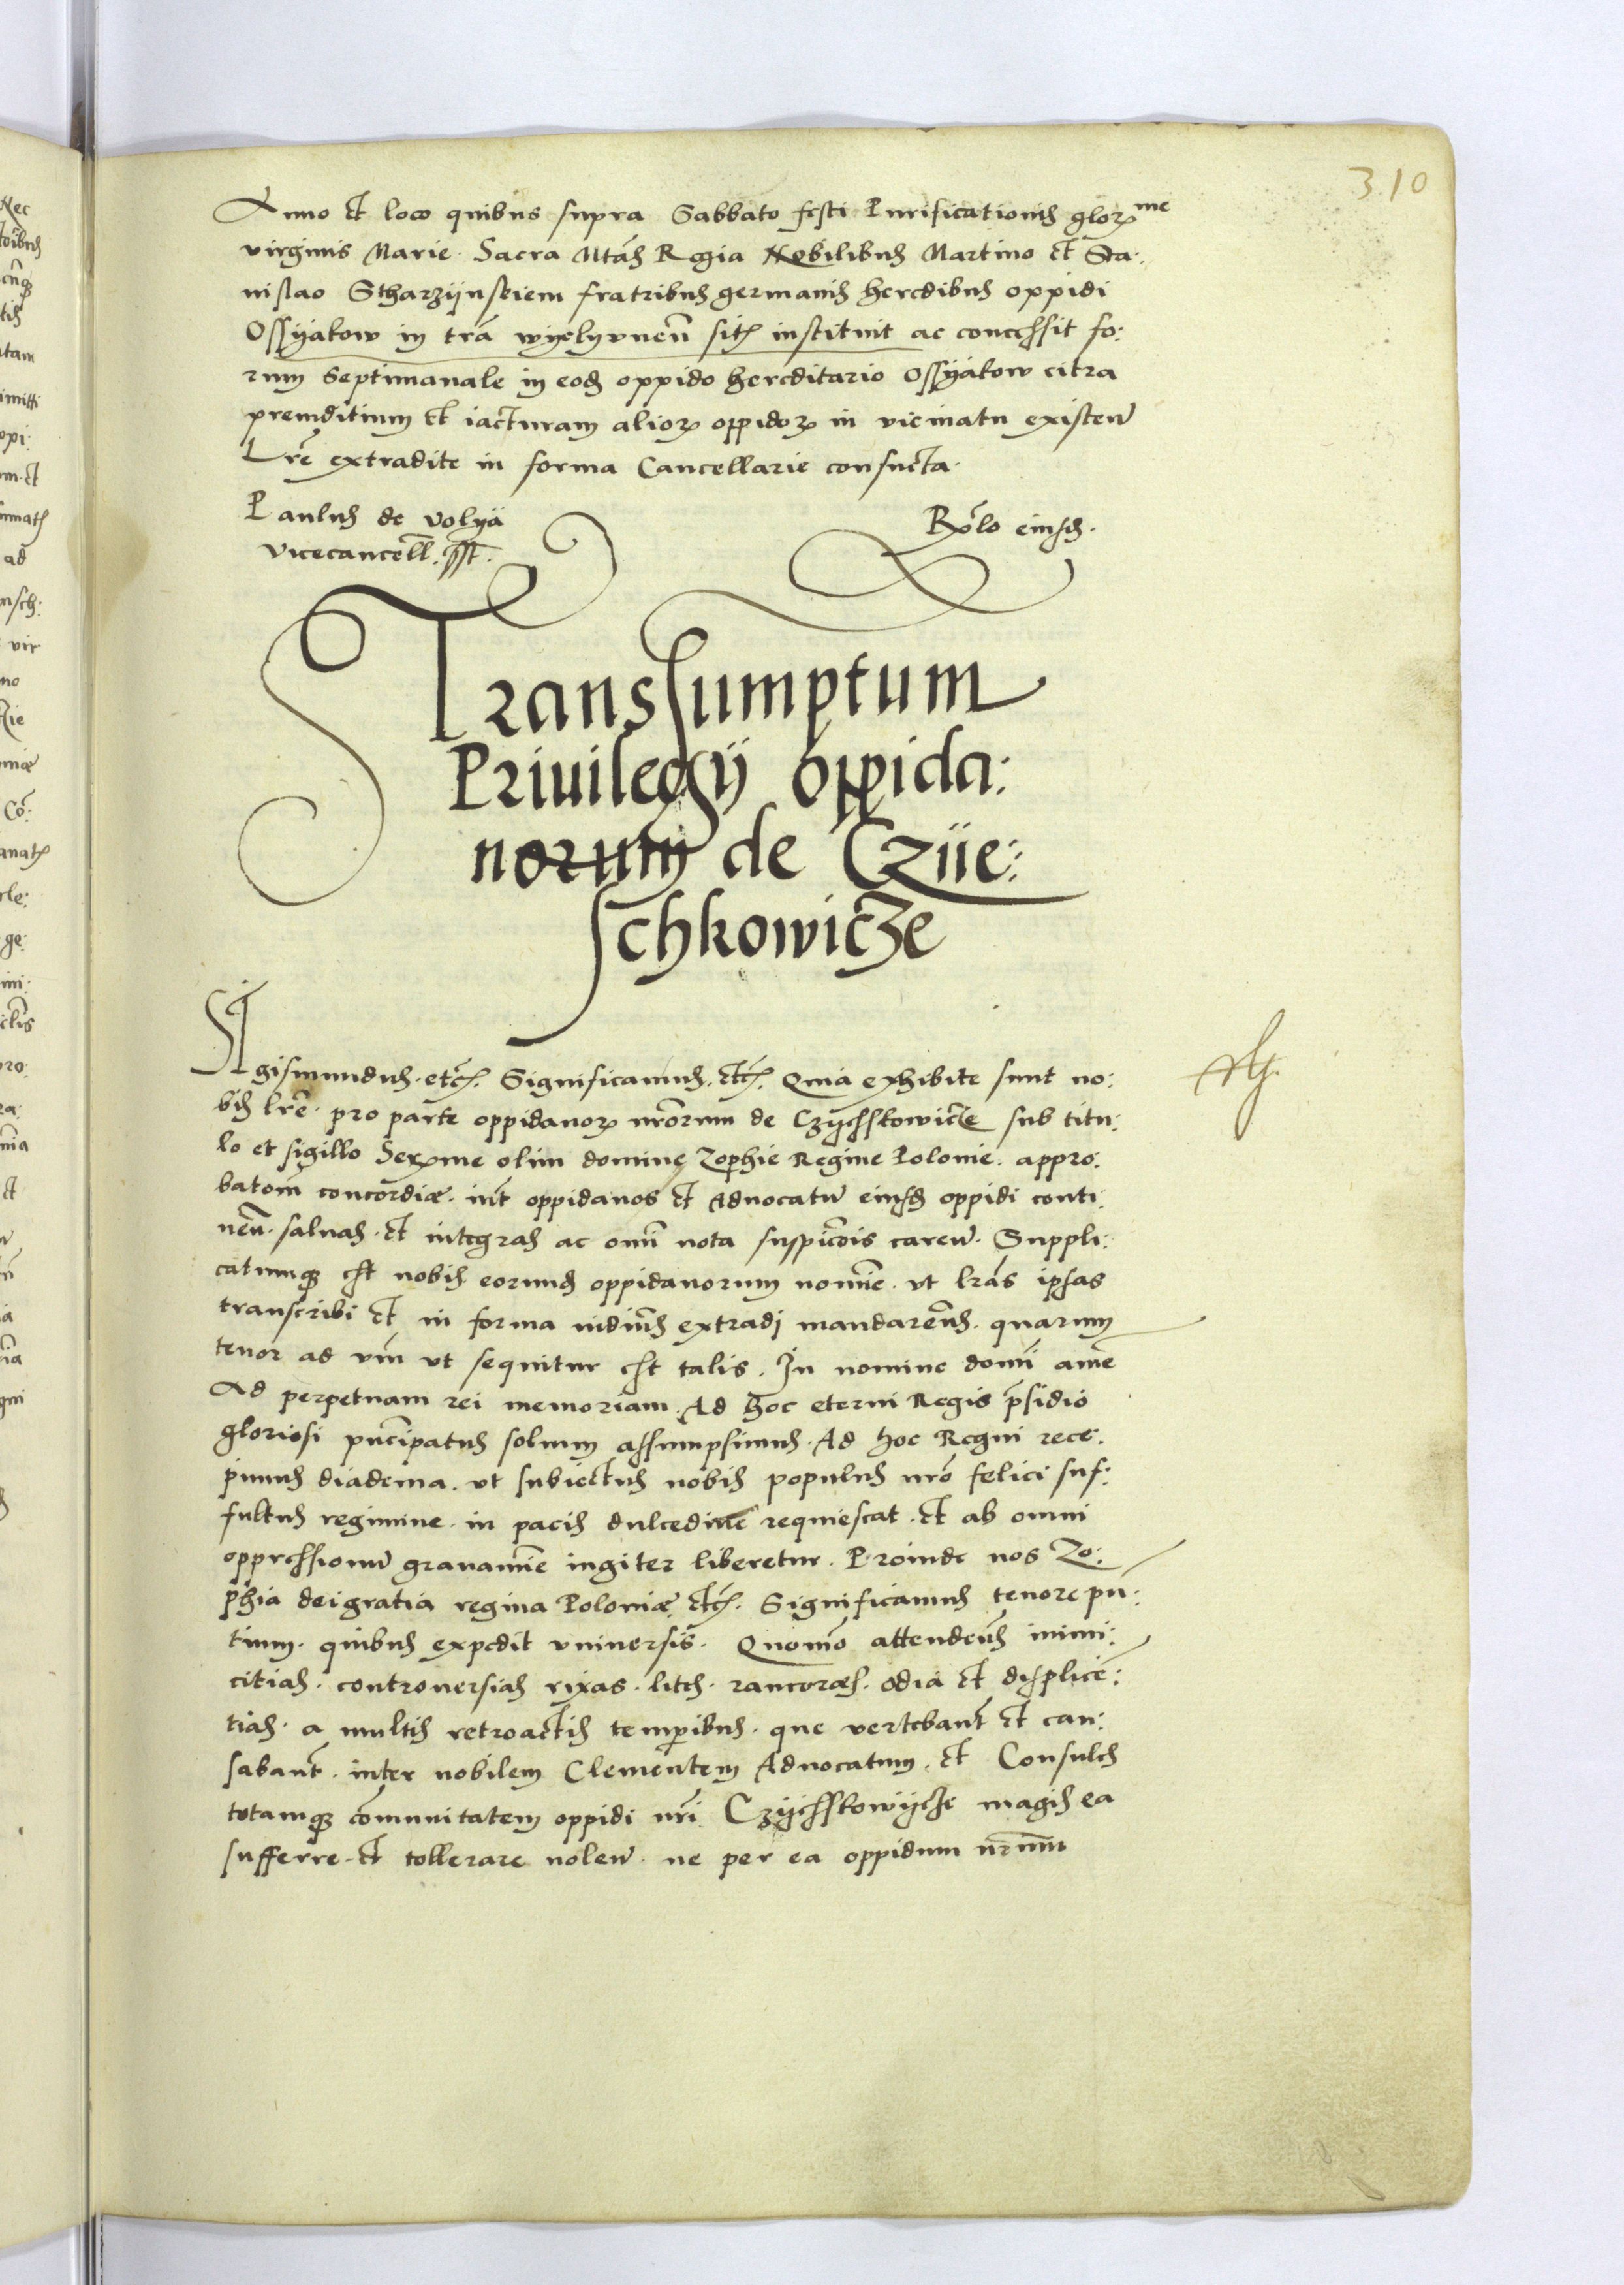 310
Anno et loco quibus supra Sabbato festi Purificationis glorme
virginis Marie. Sacra Mtas Regia Nobilibus Martino et Sta:
nislao Stharzÿnskiem fratribus germanis heredibus oppidi
Ossÿakow in tra wÿelÿunen sit instituit ac concessit fo:
rum Septimanale in eod oppido hereditario Ossÿakow citra
preiuditium et iacturam alior oppidor in vicinatu existen
Lre extradite in forma Cancellarie consueta.
Paulus de volÿa
Vicecancell. sst.
Rolo eiusd.
Transsumptum
Priuilegÿ oppida:
norum de Czÿe:
schkowicze
Sigismundus. etc. Significamus. etc. Quia exhibite sunt no:
bis lre. pro parte oppidanor nrorum de Czÿessko­wicze sub titu:
lo et sigillo Serme olim domine Zophie Regine Polonie. appro:
batom concordiæ. int oppidanos et Aduocatu eiusd oppidi conti:
nen. saluas. et integras ac omi nota suspicois caren. Suppli:
catumq est nobis eorund oppidanorum nomie. ut lras ipsas
transcribi et in forma uidimus extradi mandaremus. quarum
tenor ad vm ut sequitur est talis. In nomine domi ame
Ad perpetuam rei memoriam. Ad hoc eterni Regis psidio
gloriosi pncipatus solium assumpsimus. Ad hoc Regni rece:
pimus diadema. ut subiectus nobis populus nro felici suf:
fultus regimine. in pacis dulcedine requiescat. et ab omni
oppressionu grauamie iugiter liberetur. Proinde nos Zo:
phia dei gratia regina Poloniæ etc. Significamus tenore pn:
tium. quibus expedit vniuersis. Quomo attendentes inimi:
citias. controuersias rixas. lites. rancores. odia et displice:
tias. a multis retroactis temporibus. que vertebant et cau:
sabant. inter nobilem Clementem Aduocatum. et Consules
totamq comunitatem oppidi nri Czÿesskowÿcze magis ea
sufferre. et tollerare nolen. ne per ea oppidum nrum